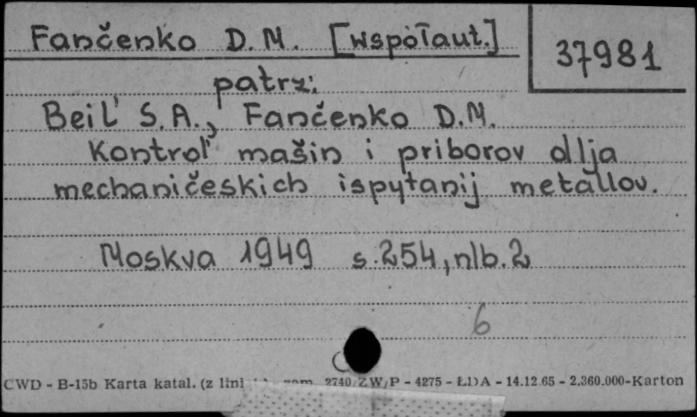 Fančenko D.M. [współaut.]
37981
patrz:
Beil' S.A., Fančenko D.M.
Kontrol' mašin i priborov dlja
mechaničeskich ispytanij metallov.
Moskva 1949 s.254, nlb.2
6
CWD - B-15b Karta katal. (z lini zam. 2740/ZW/P - 4275 - ŁDA - 14.12.65 - 2.360.000-Karton